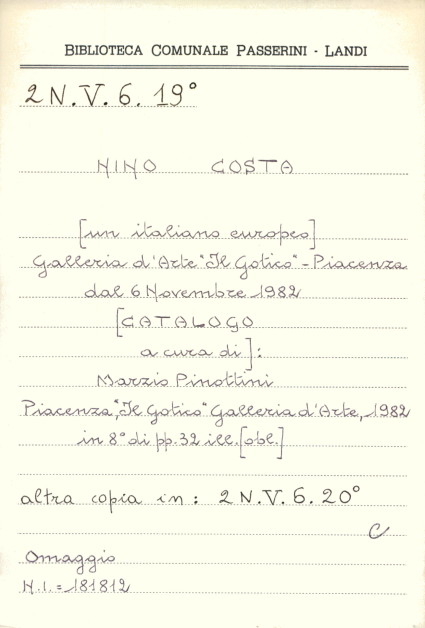 BIBLIOTECA COMUNALE PASSERINI - LANDI
2 N.V. 6. 19°
NINO COSTA
[un italiano europeo]
Galleria d'Arte "Il Gotico" - Piacenza
dal 6 Novembre 1982
[CATALOGO
a cura di]:
Marzio Pinottini
Piacenza, "Il Gotico" Galleria d'Arte, 1982
in 8° di pp. 32 ill. [obl.]
altra copia in : 2 N.V. 6. 20°
C
Omaggio
N.I. = 181812